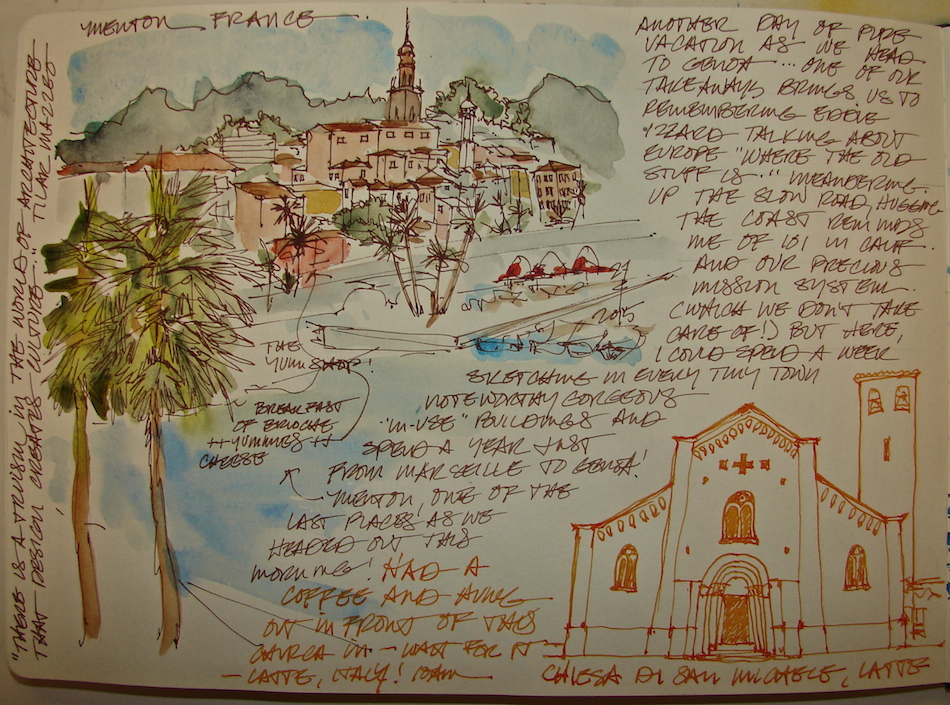 MENTON FRANCE
"THERE IS A TRUISM IN THE WORLD OF ARCHITECTURE
THAT DESIGN CREATES CULTURE..." TILAR MAZZEO
ANOTHER DAY OF PURE
VACATION AS WE HEAD
TO GENOA ... ONE OF OUR
TAKEAWAYS BRINGS US TO
REMEMBERING EDDIE
IZZARD TALKING ABOUT
EUROPE "WHERE THE OLD
STUFF IS.." MEANDERING
UP THE SLOW ROAD, HUGGING
THE COAST REMINDS
ME OF 101 IN CALIF.
AND OUR PRECIOUS
MISSION SYSTEM.
(WHICH WE DON'T TAKE
CARE OF!) BUT HERE,
I COULD SPEND A WEEK
SKETCHING IN EVERY TINY TOWN
NOTEWORTHY GORGEOUS
"IN-USE" BUILDINGS AND
SPEND A YEAR JUST
FROM MARSEILLE TO GENOA!
MENTON, ONE OF THE
LAST PLACES AS WE
HEADED OUT THIS
MORNING! HAD A
COFFEE AND HUNG
OUT IN FRONT OF THIS
CHURCH IN - WAIT FOR IT
- LATTE, ITALY! 10AM
THE
YUM SHOP!
BREAKFAST
OF BRIOCHE
++YUMMIES++
CHEESE
2015
CHIESA DI SAN MICHELE, LATTE